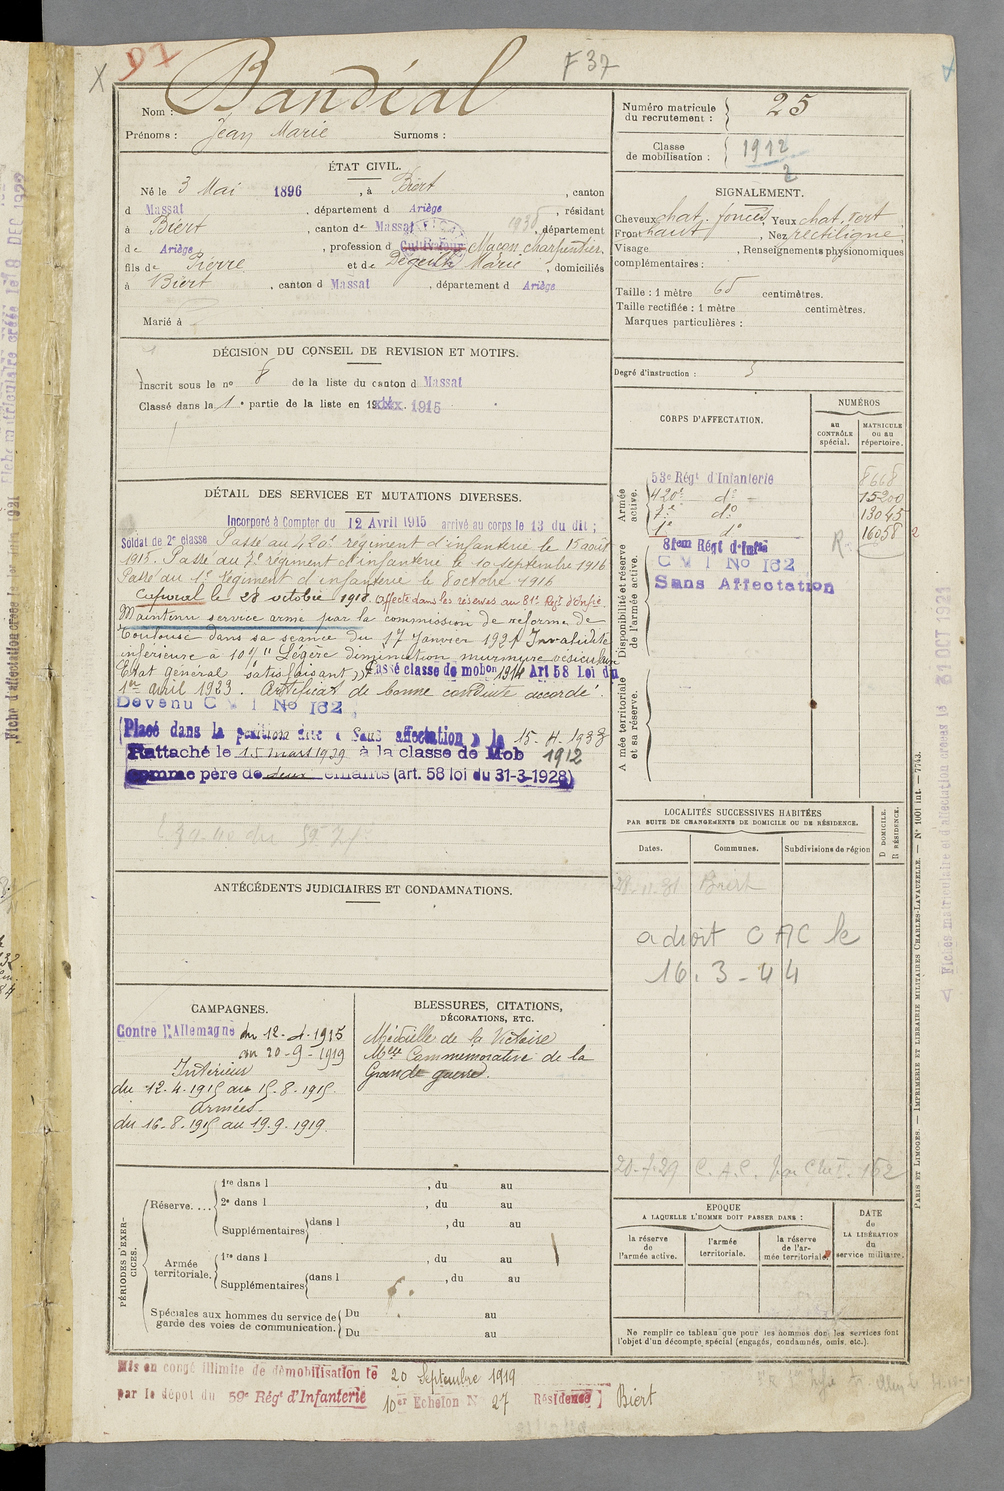 97
F 37
Nom : Bandéal
Prénoms : Jean Marie Surnoms :
Numéro matricule du recrutement : 25
Classe de mobilisation : 1912
2
ÉTAT CIVIL.
Né le 3 Mai 1896, à Biert, canton
d Massat, département d Ariège, résidant
à Biert, canton de Massat, département
de Ariège, profession d Cultivateur Maçon, charpentier,
fils de Pierre et de Dégeilh Marie, domiciliés
à Biert, canton d Massat, département d Ariège
Marié à
SIGNALEMENT.
Cheveux chat. foncés, Yeux chat. vert
Front haut, Nez rectiligne
Visage , Renseignements physionomiques
complémentaires :
Taille : 1 mètre 65 centimètres.
Taille rectifiée : 1 mètre centimètres.
Marques particulières :
Degré d'instruction : 3
DÉCISION DU CONSEIL DE REVISION ET MOTIFS.
Inscrit sous le n° 8 de la liste du canton d Massat
Classé dans la 1e partie de la liste en 19 1915
DÉTAIL DES SERVICES ET MUTATIONS DIVERSES.
Incorporé à Compter du 12 Avril 1915 arrivé au corps le 13 du dit ;
Soldat de 2e classe Passé au 420e régiment d'infanterie le 15 août
1915. Passé au 7e régiment d'infanterie le 10 septembre 1916
Passé au 1er régiment d'infanterie le 8 octobre 1916
Caporal le 28 octobre 1918. Affecté dans les réserves au 81e Régt d'Infie.
Maintenu service armé par la commission de réforme de
Toulouse dans sa séance du 17 janvier 1921 Invalidité
inférieure à 10% "Légère diminution murmure vésiculaire
État général satisfaisant" Passé classe de mobon 1914 Art 58 Loi du
1er avril 1923. Certificat de bonne conduite accordé.
Devenu C M I No 162
(Placé dans la position dite « Sans affectation » le 15. 4. 1933
Rattaché le 15 mars 1939 à la classe de Mob 1912
comme père de deux enfants (art. 58 loi du 31-3-1928)
CORPS D'AFFECTATION.
NUMÉROS
AU CONTRÔLE spécial.
MATRICULE OU AU répertoire.
Armée active.
53e Régt d'Infanterie 8668
420e do 15200
7e do 13045
1e do 16058
Disponibilité et réserve de l'armée active.
81em Régt d'Infie R.
C M I No 162
Sans Affectation
Armée territoriale et sa réserve.
LOCALITÉS SUCCESSIVES HABITÉES
PAR SUITE DE CHANGEMENTS DE DOMICILE OU DE RÉSIDENCE.
Dates. Communes. Subdivisions de région
D DOMICILE. R RÉSIDENCE.
Biert
a droit C A C le
16. 3 - 44
C. A. C. 162
ANTÉCÉDENTS JUDICIAIRES ET CONDAMNATIONS.
CAMPAGNES.
Contre l'Allemagne du 12-4-1915
au 20-9-1919
Intérieur
du 12.4.1915 au 15.8.1915.
Armées.
du 16-8-1915 au 19.9.1919.
BLESSURES, CITATIONS,
DÉCORATIONS, ETC.
Médaille de la Victoire
Mlle Commemorative de la
Grande guerre.
PÉRIODES D'EXERCICES.
Réserve. . . .
1re dans l , du au
2e dans l , du au
Supplémentaires dans l , du au
Armée territoriale.
1re dans l , du au
Supplémentaires dans l , du au
Spéciales aux hommes du service de garde des voies de communication. Du au
Du au
EPOQUE
A LAQUELLE L'HOMME DOIT PASSER DANS :
la réserve de l'armée active.
l'armée territoriale.
la réserve de l'armée territoriale.
DATE de LA LIBÉRATION du service militaire.
Ne remplir ce tableau que pour les hommes dont les services font
l'objet d'un décompte spécial (engagés, condamnés, omis, etc.).
Mis en congé illimité de démobilisation le 20 Septembre 1919
par le dépot du 59e Régt d'Infanterie 10er Echelon N° 27 Résidence Biert
PARIS ET LIMOGES. — IMPRIMERIE ET LIBRAIRIE MILITAIRES CHARLES-LAVAUZELLE. — N° 1001 int. — 7743.
Fiches matriculaire et d'affectation créées le 31 OCT 1921